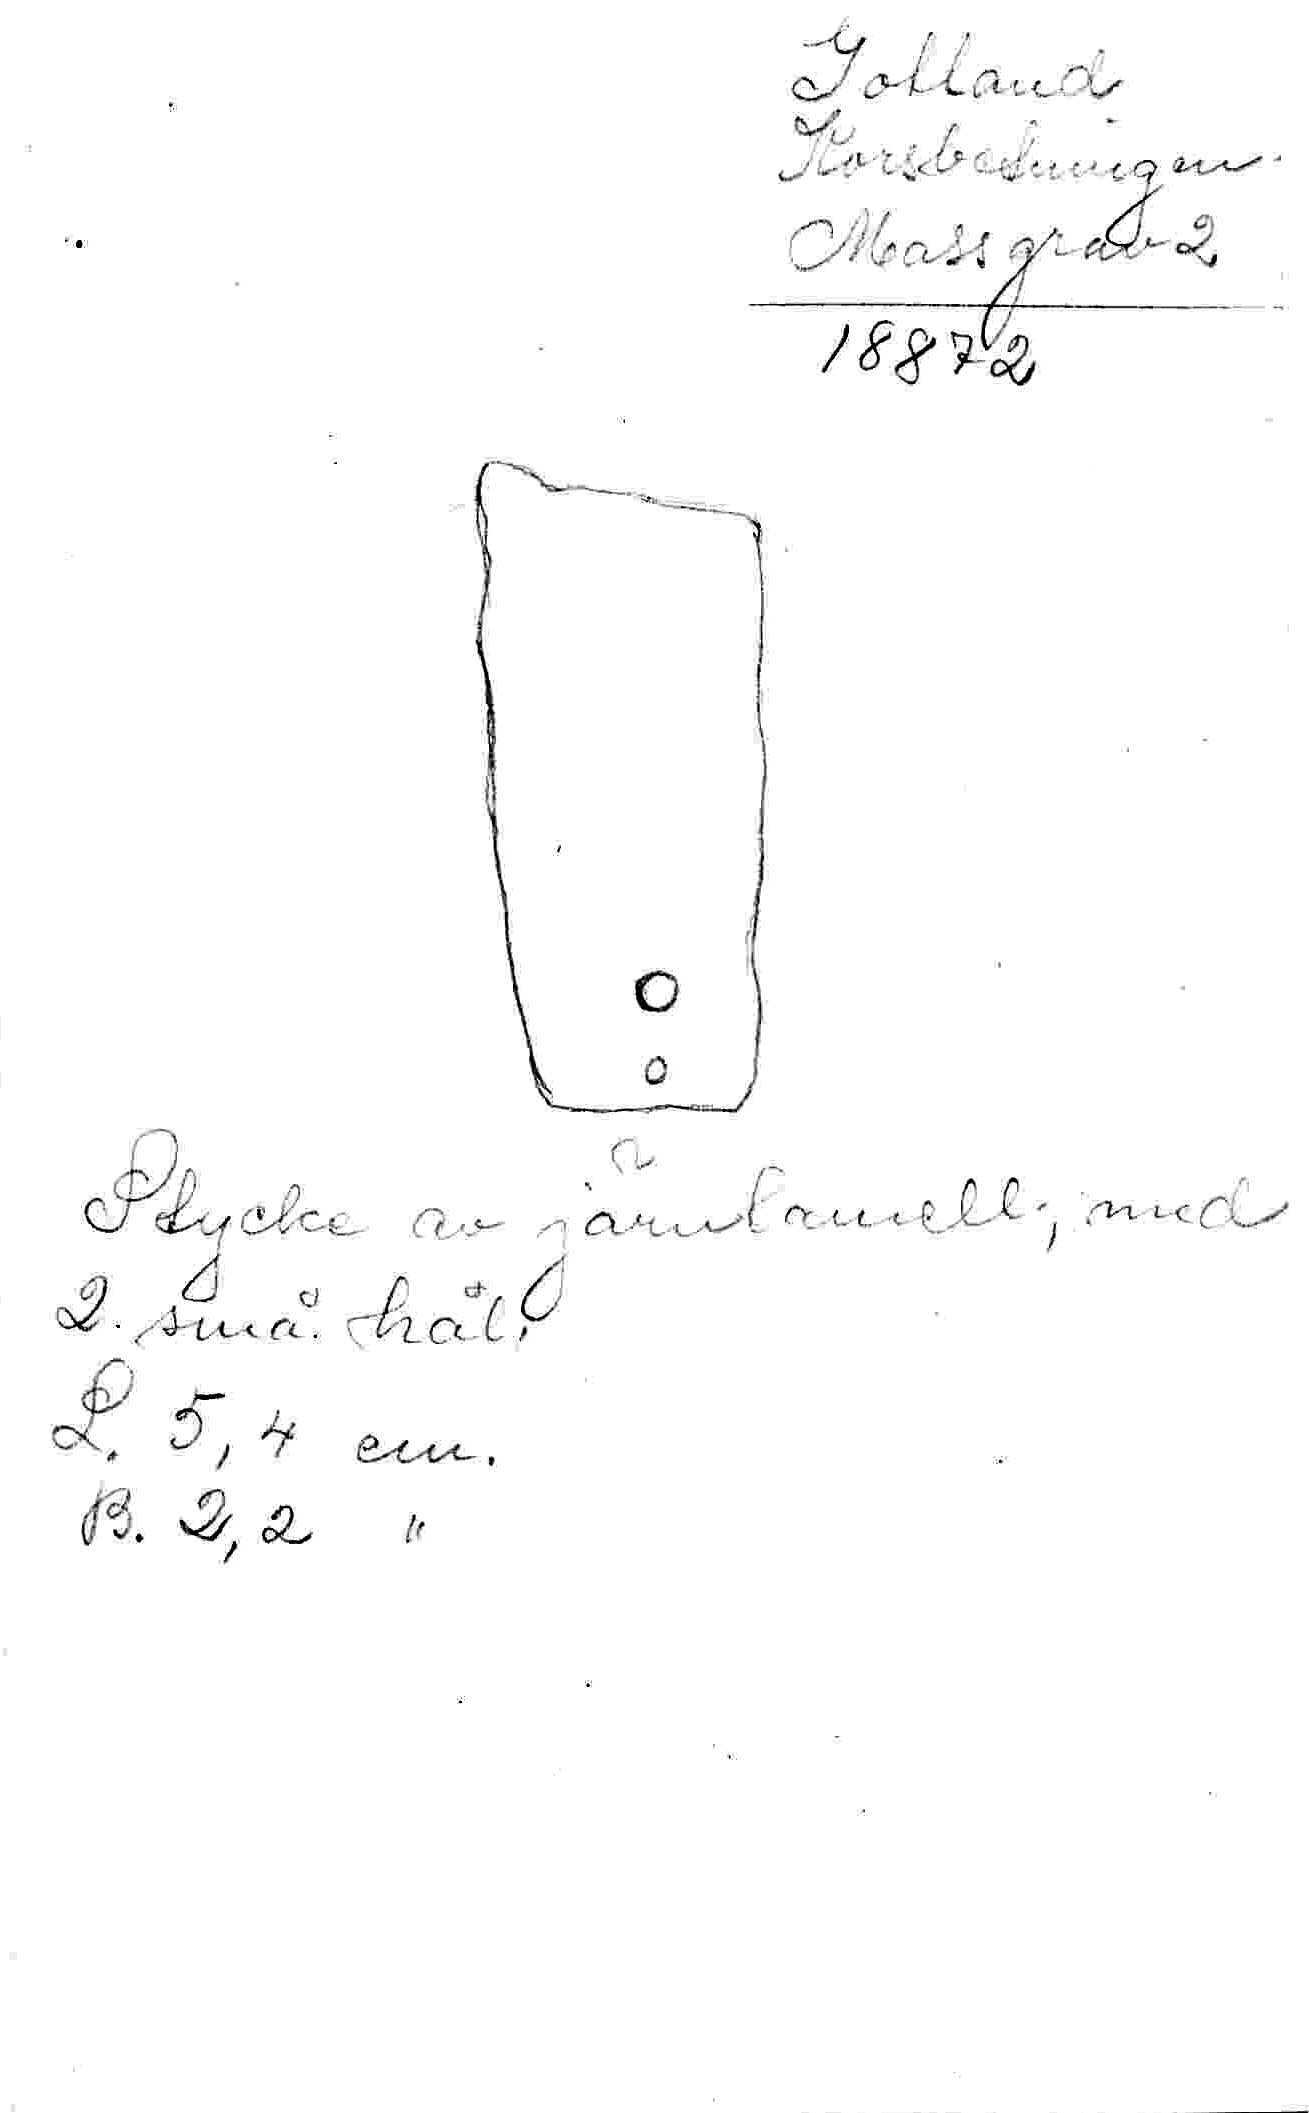 Gotland
Korsbetningen.
Massgrav 2
18872
Stycke av järnlamell, med
2. små hål.
L. 5,4 cm.
B. 2,2 "